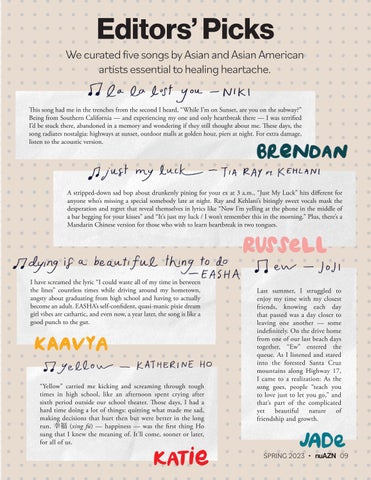 Editors’ Picks
We curated five songs by Asian and Asian American
artists essential to healing heartache.
la la lost you — NIKI
This song had me in the trenches from the second I heard, “While I’m on Sunset, are you on the subway?”
Being from Southern California — and experiencing my one and only heartbreak there — I was terrified
I’d be stuck there, abandoned in a memory and wondering if they still thought about me. These days, the
song radiates nostalgia: highways at sunset, outdoor malls at golden hour, piers at night. For extra damage,
listen to the acoustic version.
BRENDAN
just my luck — TIA RAY ft KEHLANI
A stripped-down sad bop about drunkenly pining for your ex at 3 a.m., “Just My Luck” hits different for
anyone who’s missing a special somebody late at night. Ray and Kehlani’s bingly sweet vocals mask the
desperation and regret that reveal themselves in lyrics like “Now I’m yelling at the phone in the middle of
a bar begging for your kisses” and “It’s just my luck / I won’t remember this in the morning.” Plus, there’s a
Mandarin Chinese version for those who wish to learn heartbreak in two tongues.
RUSSELL
dying is a beautiful thing to do
— EASHA
I have screamed the lyric “I could waste all of my time in between
the lines” countless times while driving around my hometown,
angsty about graduating from high school and having to actually
become an adult. EASHA’s self-confident, quasi-manic pixie dream
girl vibes are cathartic, and even now, a year later, the song is like a
good punch to the gut.
KAAVYA
ew — JOJI
Last summer, I struggled to
enjoy my time with my closest
friends, knowing each day
that passed was a day closer to
leaving one another — some
indefinitely. On the drive home
from one of our last beach days
together, “Ew” entered the
queue. As I listened and stared
into the forested Santa Cruz
mountains along Highway 17,
I came to a realization: As the
song goes, people “teach you
to love just to let you go,” and
that’s part of the complicated
yet beautiful nature of
friendship and growth.
JADE
yellow — KATHERINE HO
“Yellow” carried me kicking and screaming through tough
times in high school, like an afternoon spent crying after
sixth period outside our school theater. Those days, I had a
hard time doing a lot of things: quitting what made me sad,
making decisions that hurt then but were better in the long
run. 幸福 (xìng fú) — happiness — was the first thing Ho
sung that I knew the meaning of. It’ll come, sooner or later,
for all of us.
KATIE
SPRING 2023 • nuAZN 09